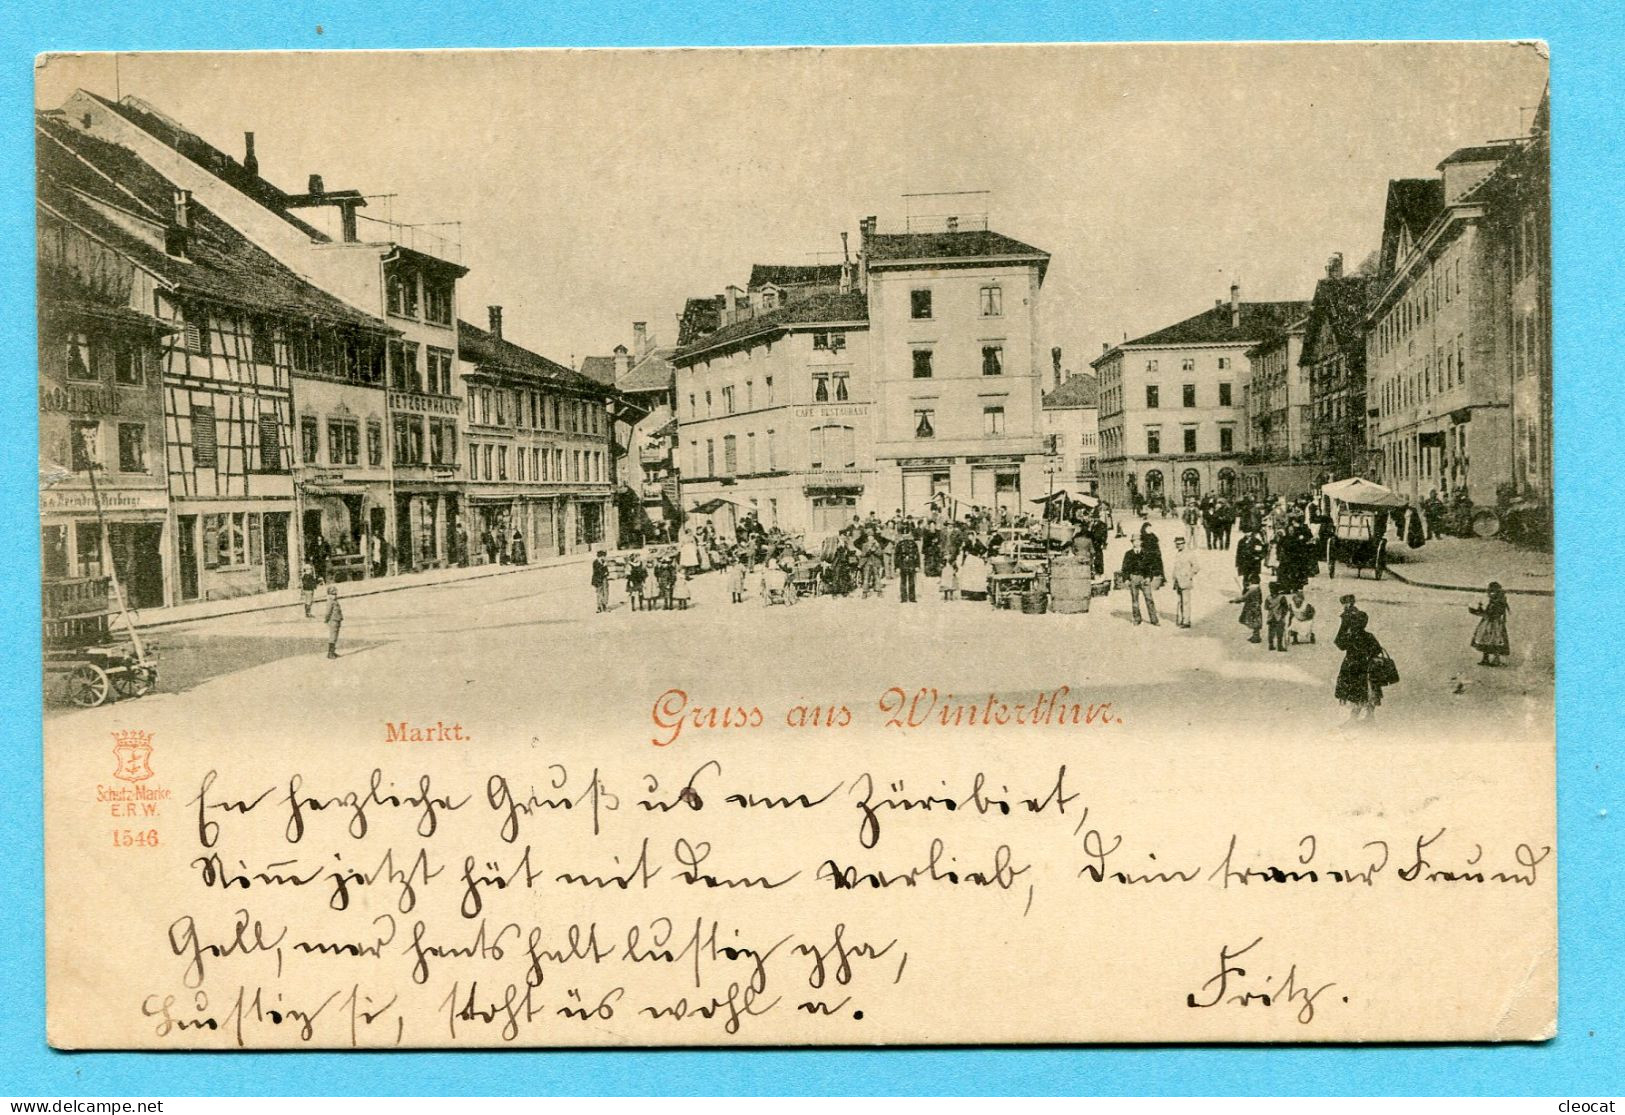 METZGERHALLE
CAFÉ RESTAURANT
Markt.
Gruss aus Winterthur.
Schutz-Marke
E.R.W.
1546
En herzliche Gruß us em Züribiet,
Nim̅e jetzt hüt mit dem verlieb,
Dein treuer Freund
Gell, mer hents halt lustig gha,
Lustig si, stoht üs wohl a.
Fritz.
cleocat